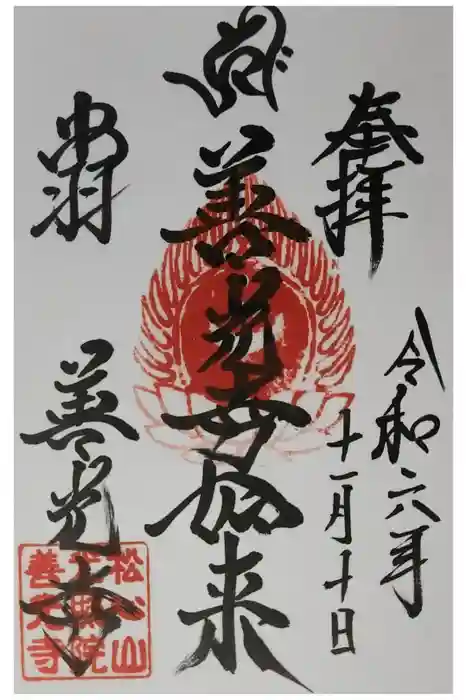 奉拝
令和六年
十一月十日
善光寺如来
出羽
善光寺
善光寺